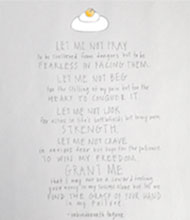 LET ME NOT PRAY
to be sheltered from dangers but to be
FEARLESS IN FACING THEM.
LET ME NOT BEG
for the stilling of my pain but for the
HEART TO CONQUER IT.
LET ME NOT LOOK
for allies in life's battlefield but to my own
STRENGTH.
LET ME NOT CRAVE
in anxious fear but hope for the patience
TO WIN MY FREEDOM.
GRANT ME
that I may not be a coward feeling
your mercy in my success alone but let me
FIND THE GRASP OF YOUR HAND
IN MY FAILURE.
- rabindranath tagore